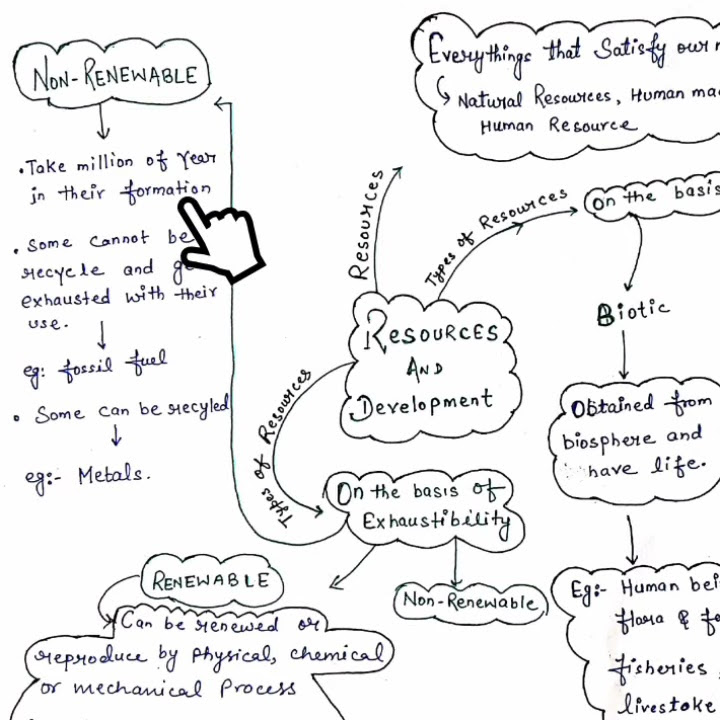 NON-RENEWABLE
• Take million of year
in their formation
• Some cannot be
recycle and
exhausted with their
use.
eg: fossil fuel
• Some can be recyled
eg:- Metals.
Everythings that Satisfy our
Natural Resources, Human
Human Resource
Resources
Types of Resources
On the basis
Biotic
Obtained from
biosphere and
have life.
Eg:- Human
flora &
fisheries,
livestoke
RESOURCES
AND
Development
Types of Resources
On the basis of
Exhaustibility
Non-Renewable
RENEWABLE
Can be renewed or
reproduce by physical, chemical
or mechanical Process